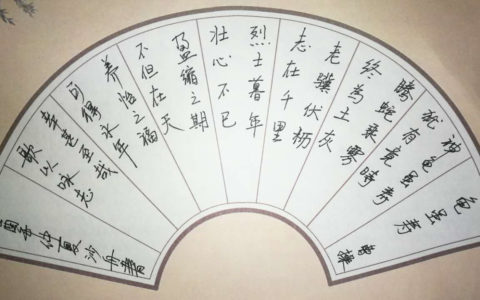 龟虽寿
曹操
神龟虽寿
猶有竟時
腾蛇乘雾
终為土灰
老骥伏枥
志在千里
烈士暮年
壮心不已
盈缩之期
不但在天
养怡之福
可得永年
幸甚至哉
歌以咏志
仲夏沙舟書